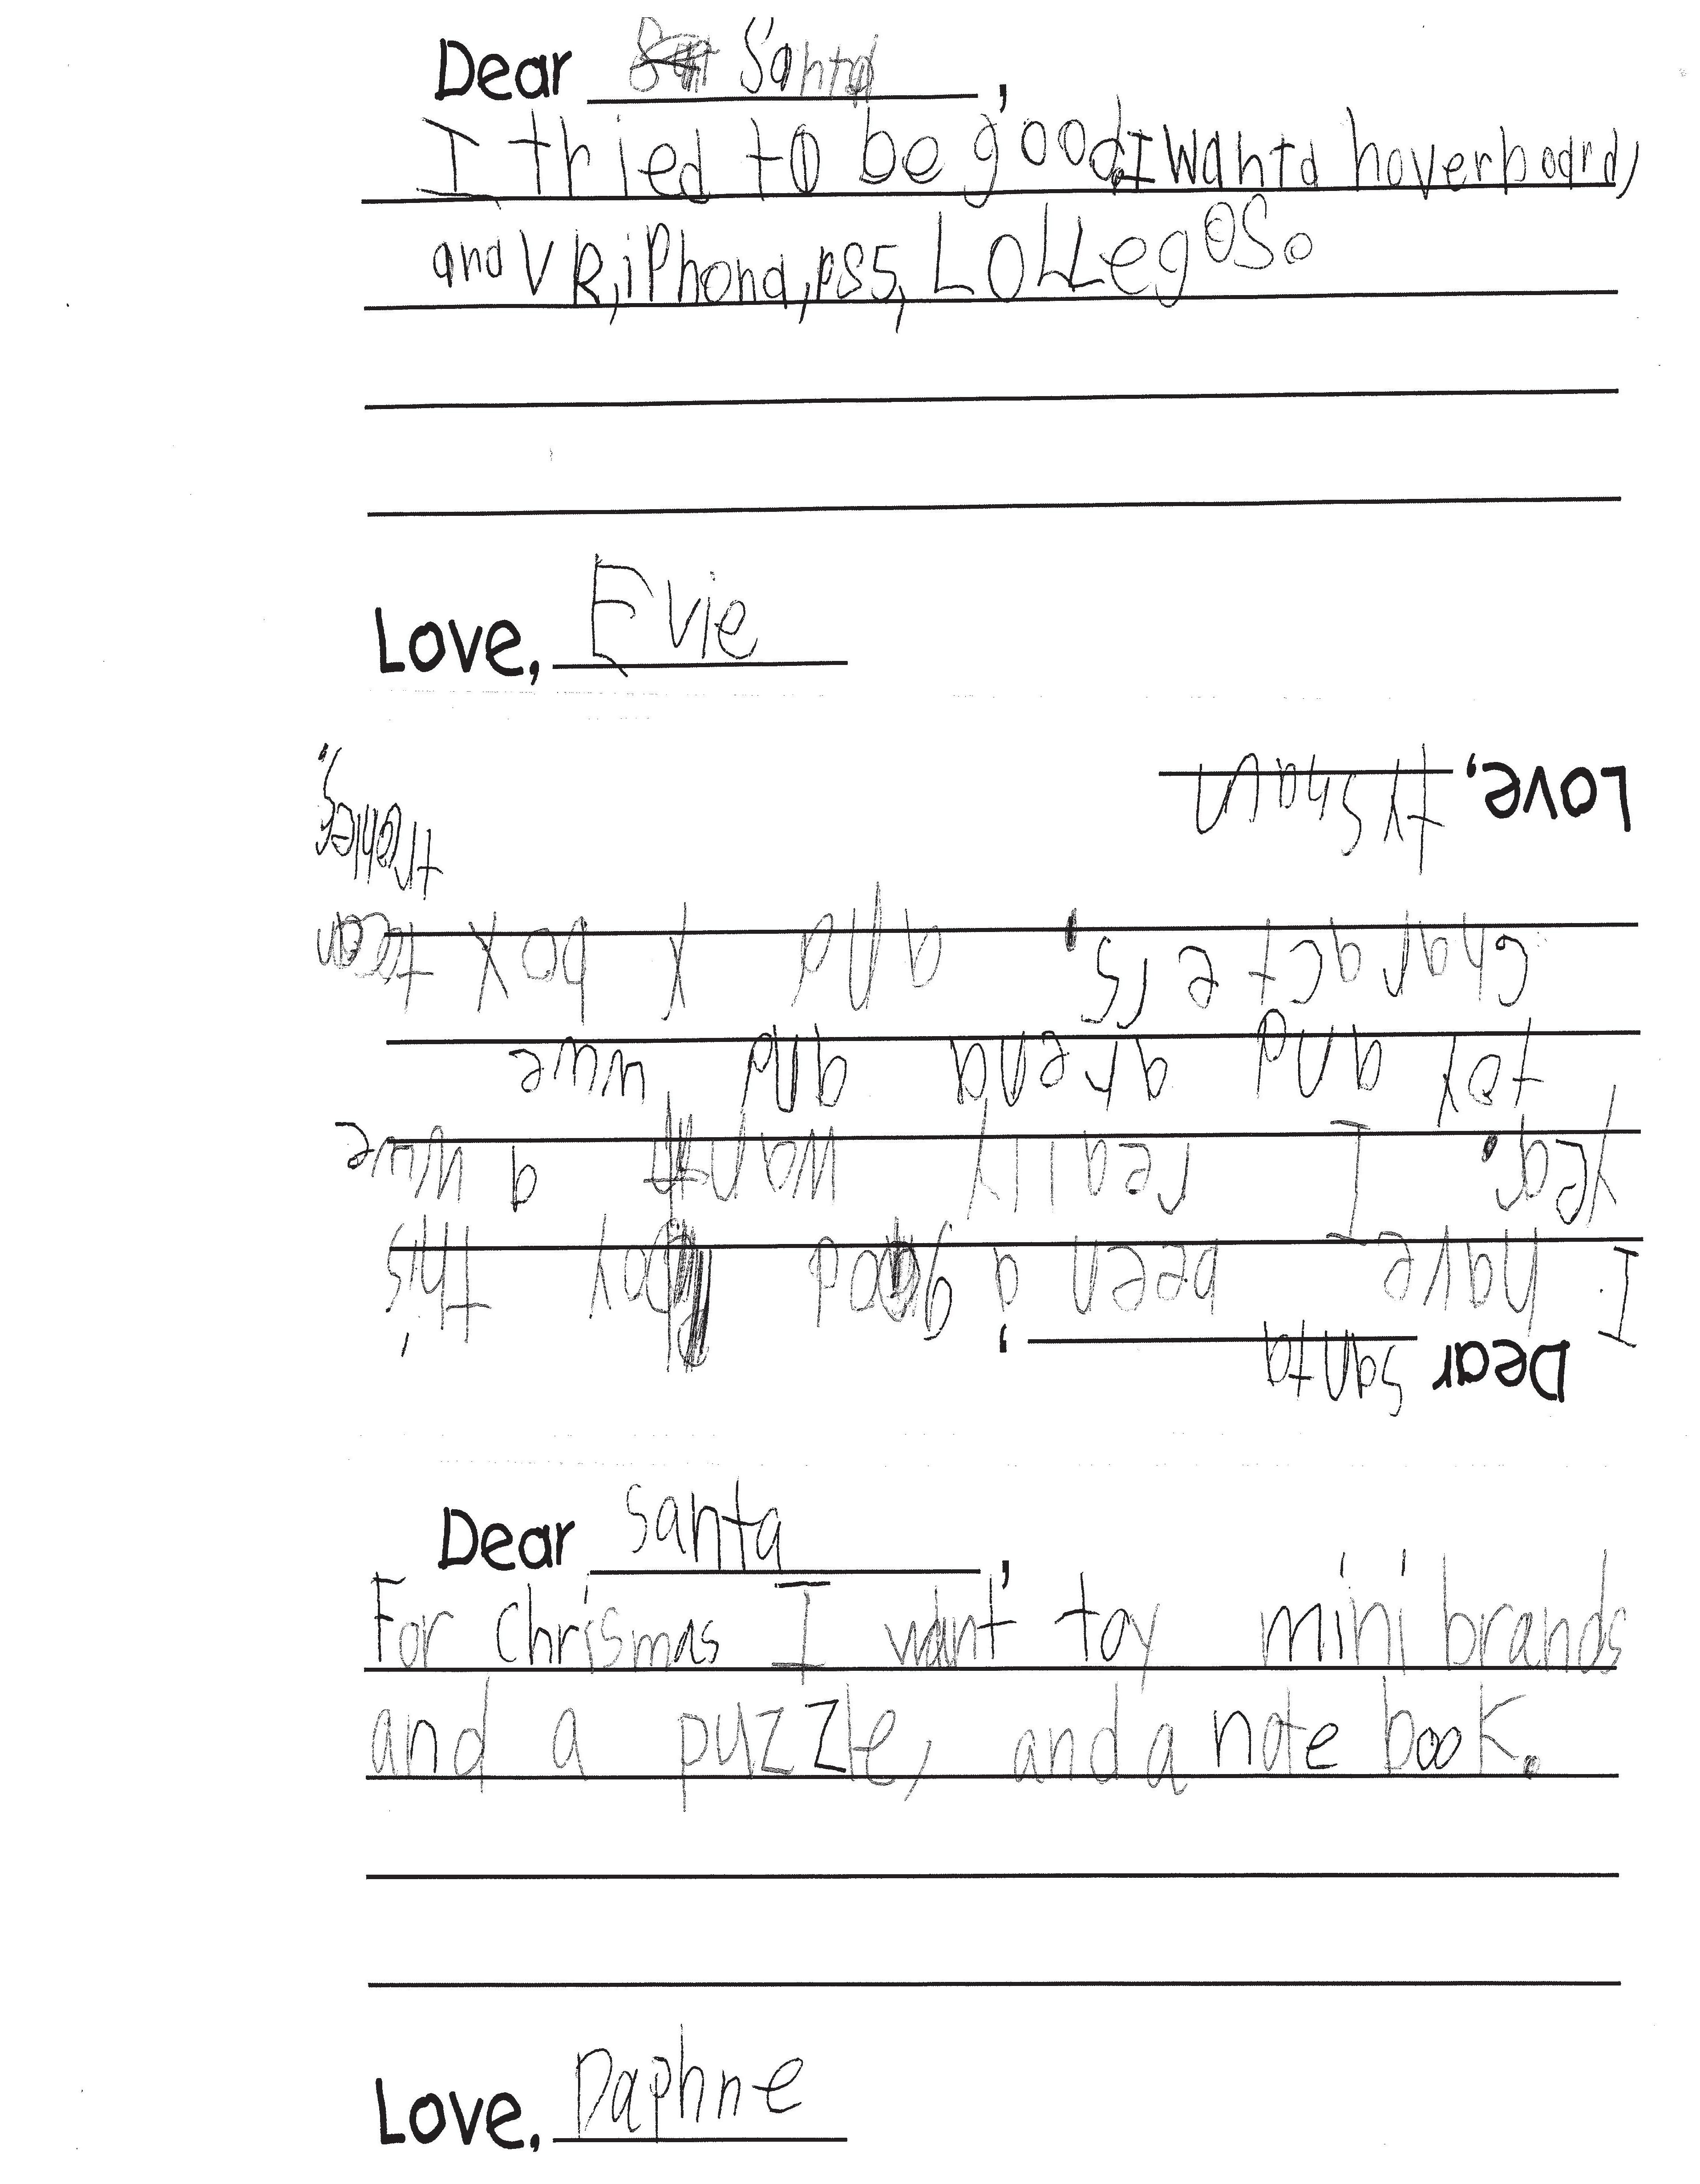 Dear Santa,
I tried to be good. I want a hoverboard,
and VR, iPhona, ps5, LOL Legos.
Love, Evie
Dear Santa,
I have been a good boy this
year. I really want a wwe
toy and arena and wwe
characters. and x box
Love, tyshaun
Dear Santa,
For Chrismas I want toy mini brands
and a puzzle, and a note book.
Love, Daphne